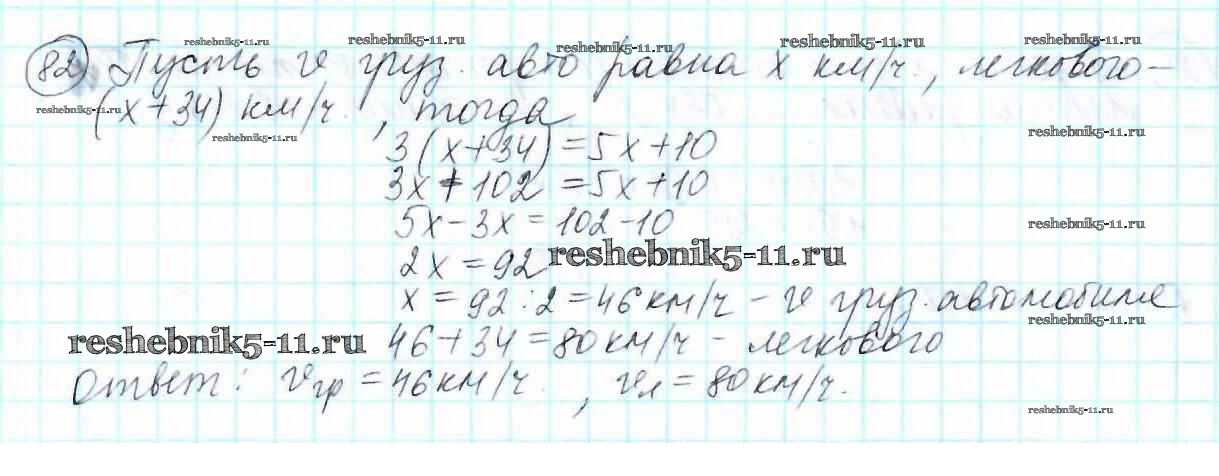 reshebnik5-11.ru reshebnik5-11.ru reshebnik5-11.ru reshebnik5-11.ru
82 Пусть v груз. авто равна x км/ч, легкового -
(x+34) км/ч, тогда
reshebnik5-11.ru reshebnik5-11.ru reshebnik5-11.ru reshebnik5-11.ru
3(x+34)=5x+10
3x+102=5x+10
5x-3x=102-10
reshebnik5-11.ru
2x=92
reshebnik5-11.ru
x=92:2=46км/ч - v груз. автомобиля
reshebnik5-11.ru
46+34=80км/ч - легкового
reshebnik5-11.ru
Ответ: vгр=46км/ч., vл=80км/ч.
reshebnik5-11.ru